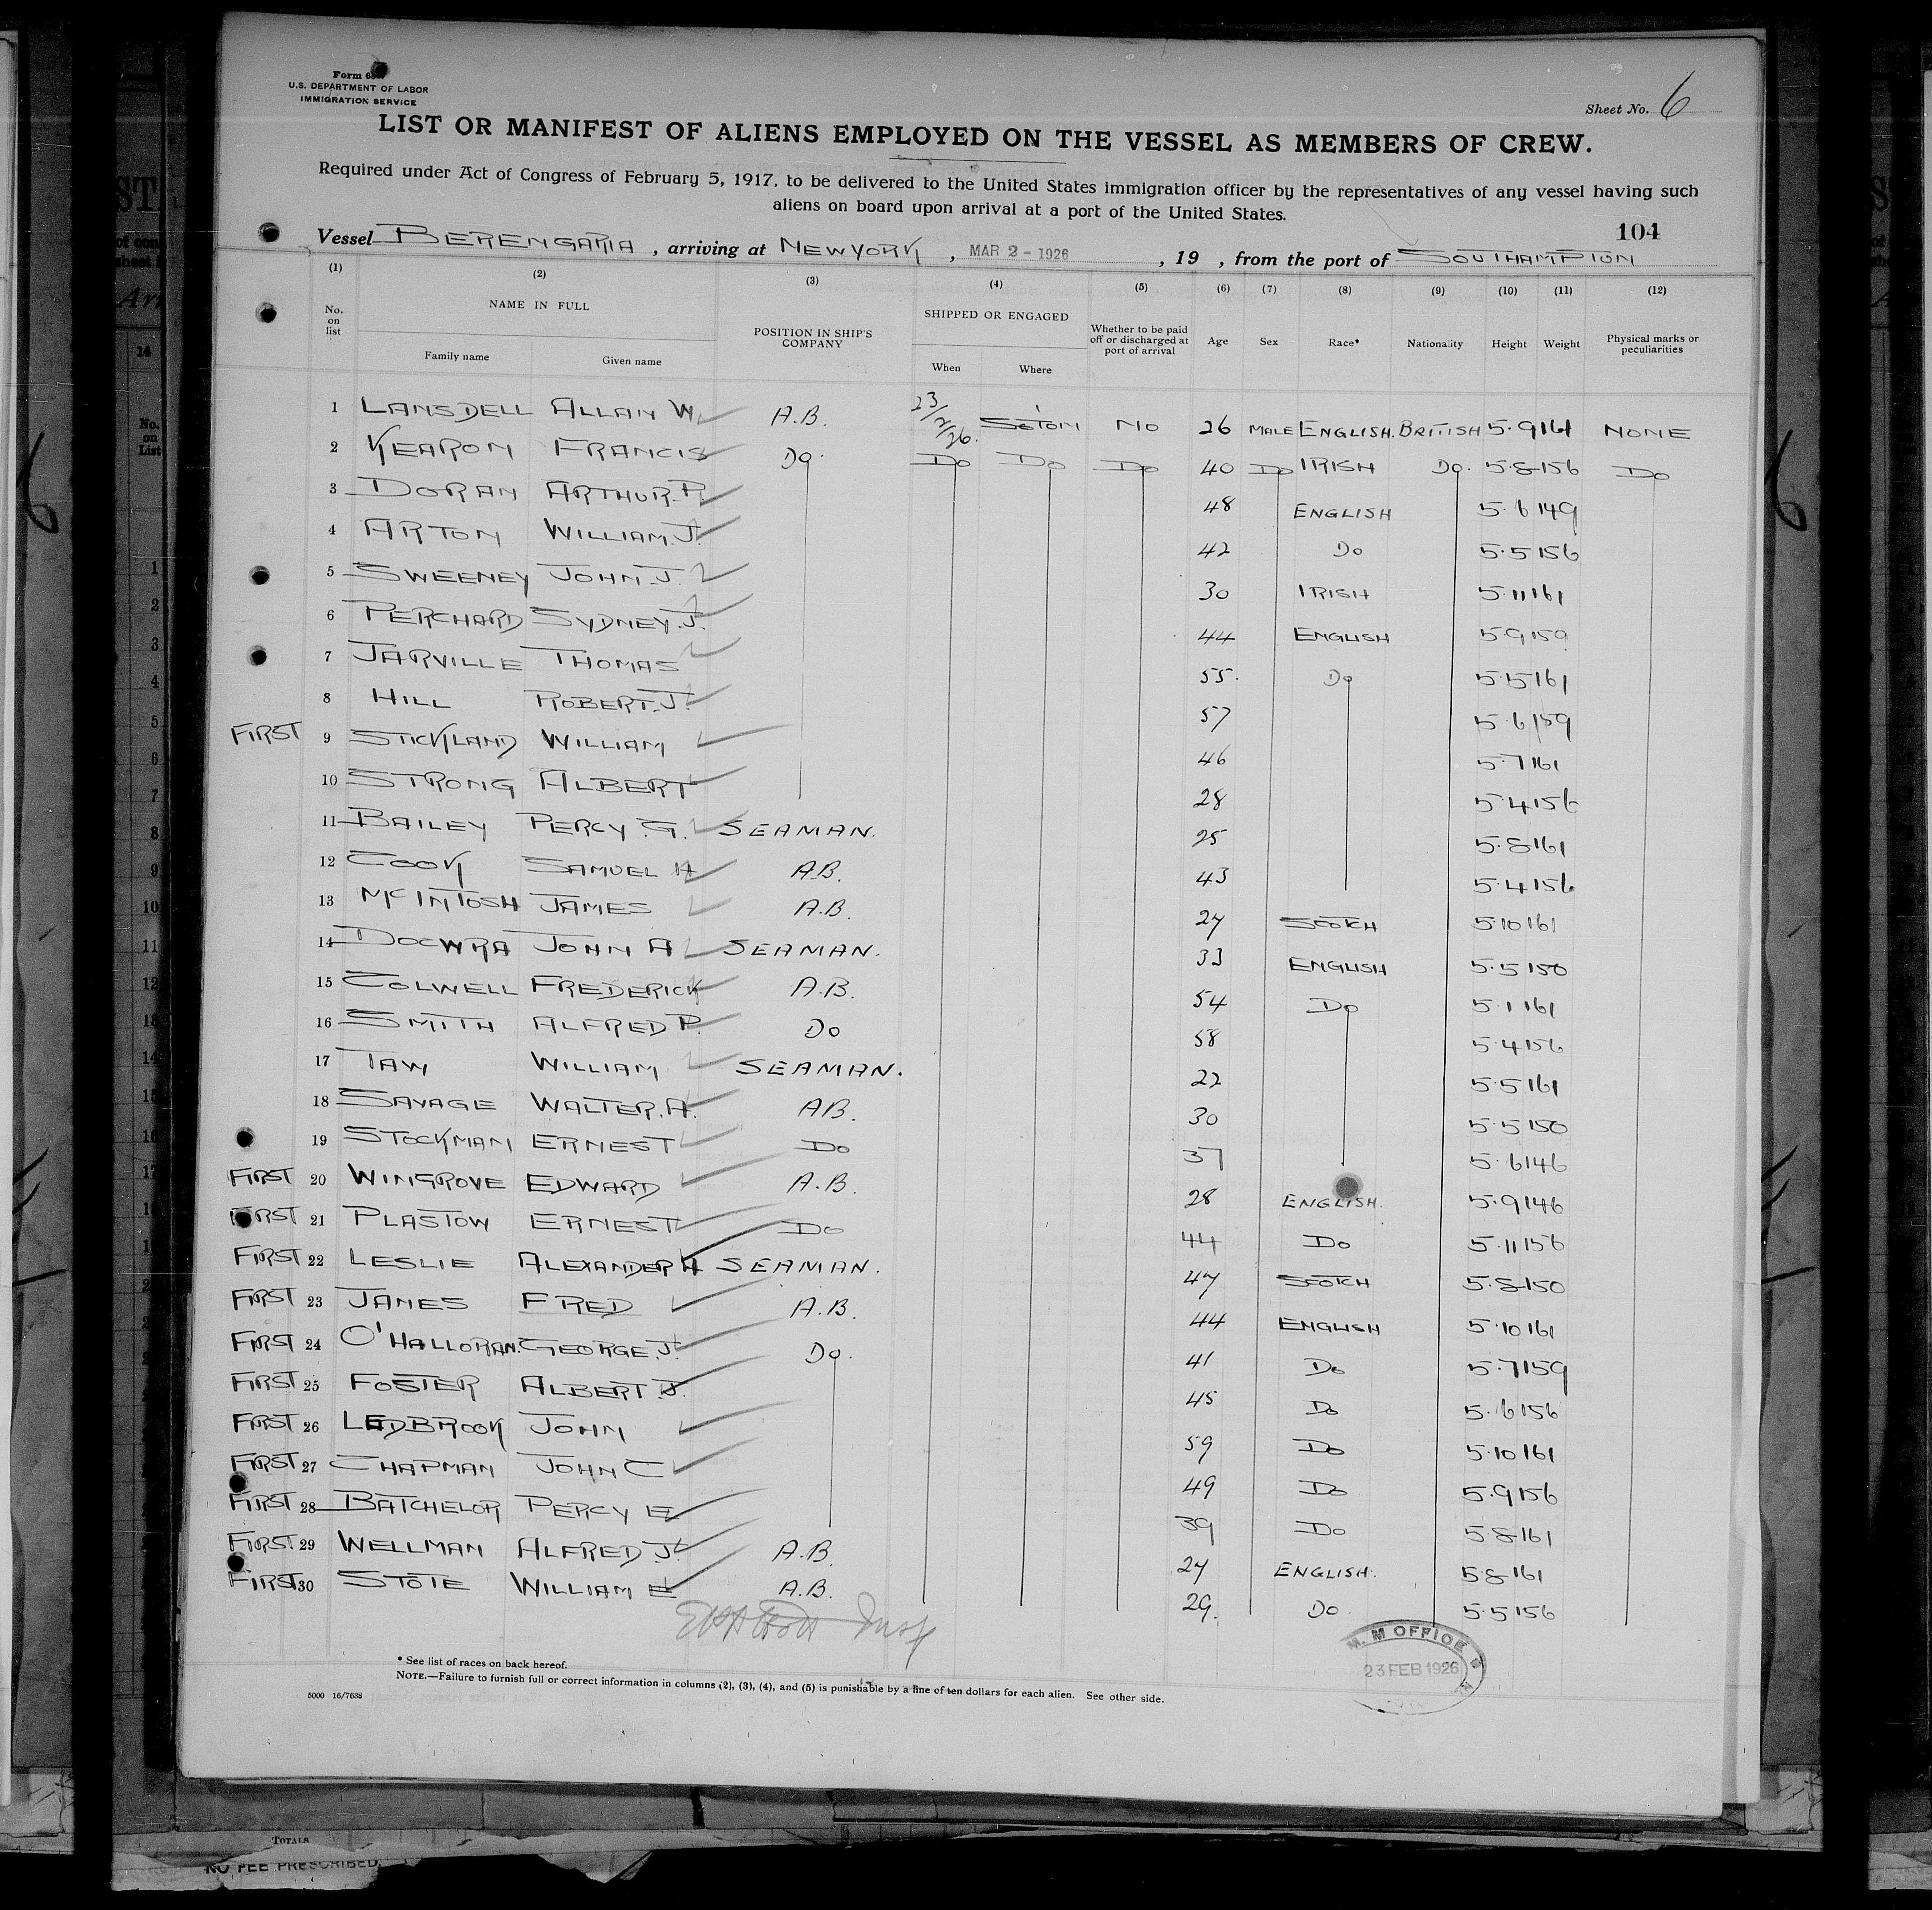 Form 680
U.S. DEPARTMENT OF LABOR
IMMIGRATION SERVICE
Sheet No. 6
LIST OR MANIFEST OF ALIENS EMPLOYED ON THE VESSEL AS MEMBERS OF CREW.
Required under Act of Congress of February 5, 1917, to be delivered to the United States immigration officer by the representatives of any vessel having such
aliens on board upon arrival at a port of the United States.
104
Vessel BERENGARIA, arriving at NEW YORK, MAR 2 - 1926, 19 , from the port of SOUTHAMPTON
(1) (2) (3) (4) (5) (6) (7) (8) (9) (10) (11) (12)
No. on list NAME IN FULL POSITION IN SHIP'S COMPANY SHIPPED OR ENGAGED Whether to be paid off or discharged at port of arrival Age Sex Race* Nationality Height Weight Physical marks or peculiarities
Family name Given name When Where
1 LANSDELL ALLAN W A.B. 23/2/26. So'TON NO 26 MALE ENGLISH. BRITISH 5.9 161 NONE
2 KEARON FRANCIS Do. Do Do Do 40 Do IRISH Do. 5.8 156 Do
3 DORAN ARTHUR.R 48 ENGLISH 5.6 149
4 ARTON WILLIAM.J. 42 Do 5.5 156
5 SWEENEY JOHN.J. 30 IRISH 5.11 161
6 PERCHARD SYDNEY.J. 44 ENGLISH 5.9 159
7 JARVILLE THOMAS 55. Do 5.5 161
8 HILL ROBERT.J. 57 5.6 159
FIRST 9 STICKLAND WILLIAM 46 5.7 161
10 STRONG ALBERT 28 5.4 156
11 BAILEY PERCY.G. SEAMAN. 25 5.8 161
12 COOK SAMUEL H A.B. 43 5.4 156
13 McINTOSH JAMES A.B. 27 SCOTCH 5.10 161
14 DOCWRA JOHN A SEAMAN. 33 ENGLISH 5.5 150
15 COLWELL FREDERICK A.B. 54 Do 5.1 161
16 SMITH ALFRED P. Do 58 5.4 156
17 TAW WILLIAM SEAMAN. 22 5.5 161
18 SAVAGE WALTER.A. AB. 30 5.5 150
19 STOCKMAN ERNEST Do 37 5.6 146
FIRST 20 WINGROVE EDWARD A.B. 28 ENGLISH. 5.9 146
FIRST 21 PLASTOW ERNEST Do 44 Do 5.11 156
FIRST 22 LESLIE ALEXANDER A SEAMAN. 47 SCOTCH 5.8 150
FIRST 23 JAMES FRED A.B. 44 ENGLISH 5.10 161
FIRST 24 O'HALLORAN. GEORGE.J. Do. 41 Do 5.7 159
FIRST 25 FOSTER ALBERT J. 45 Do 5.6 156
FIRST 26 LEDBROOK JOHN 59 Do 5.10 161
FIRST 27 CHAPMAN JOHN C 49 Do 5.9 156
FIRST 28 BATCHELOR PERCY E 39 Do 5.8 161
FIRST 29 WELLMAN ALFRED J. A.B. 27 ENGLISH. 5.8 161
FIRST 30 STOTE WILLIAM E A.B. 29. Do. 5.5 156
Insp
M. M OFFICE
23 FEB 1926
* See list of races on back hereof.
NOTE.—Failure to furnish full or correct information in columns (2), (3), (4), and (5) is punishable by a fine of ten dollars for each alien. See other side.
5000 16/7638
TOTALS
NO FEE PRESCRIBED.